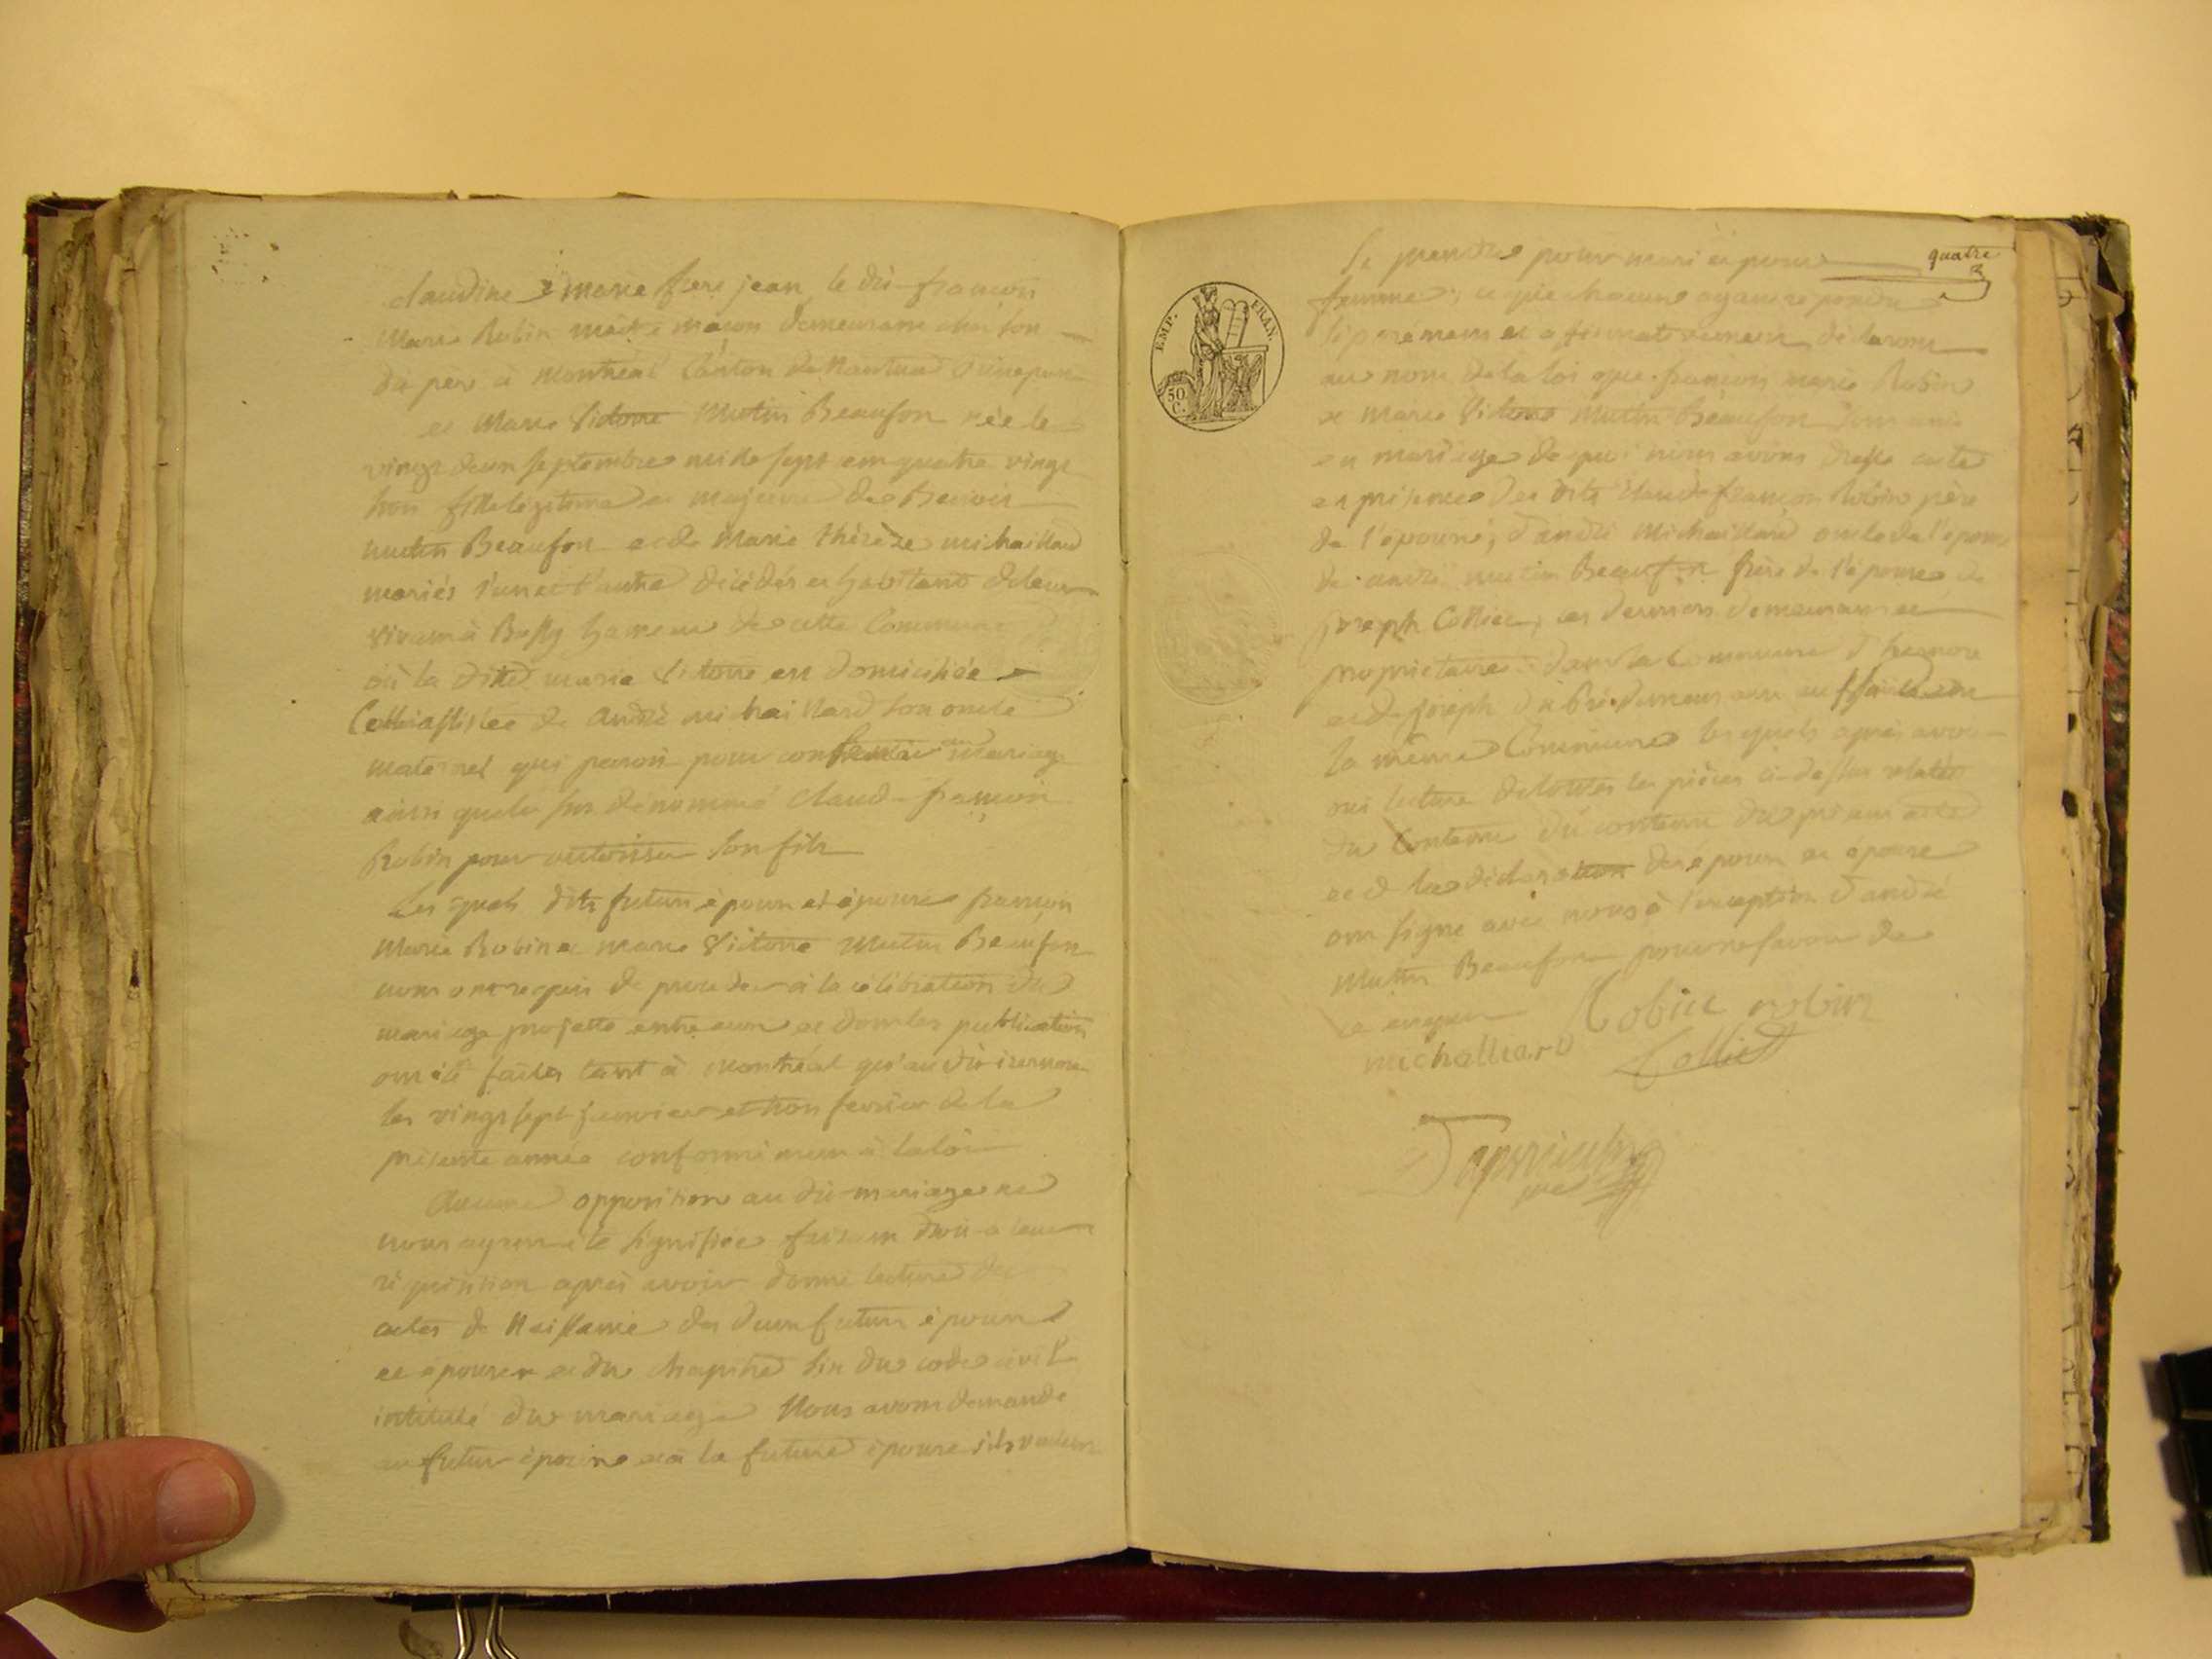 claudine marie frere jean le dit françois
Marie Robin maitre maçon demeurant chez son
dit père à Montréal Canton de Nantua
et Marie Victoire Mutin Beaufon née le
vingt deux septembre mille sept cent quatre vingt
trois fille légitime et majeure de Benoit
mutin Beaufon et de Marie thérèze michaillard
mariés l'un et l'autre décédés et habitant de leur
vivant à hameau de cette Commune
où la dite marie Victoire est domiciliée
Celle assistée de André michaillard son oncle
maternel qui paroit pour mariage
ainsi que le sus dénommé Claude françois
Robin pour autoriser son fils
Les quels dits futurs époux et épouse françois
Marie Robin et marie Victoire Mutin Beaufon
nous ont requis de proceder à la célébration du
mariage projetté entre eux et dont les publications
ont été faites tant à Montréal qu'au dit izernore
les vingt sept janvier et trois fevrier de la
présente année conformément à la loi
Aucune opposition au dit mariage ne
nous ayant été signifiée faisant droit à leur
réquisition après avoir donné lecture des
actes de Naissance des deux futurs époux
et épouse et du chapitre six du code civil
intitulé du mariage Nous avons demandé
au futur époux et à la future épouse s'ils veulent
se prendre pour mari et pour
quatre
femme; ce que chacun ayant repondu
séparement et affirmativement déclarons
EMP. FRAN.
50 C.
au nom de la loi que françois marie Robin
et Marie Victoire Mutin Beaufon sont unis
en mariage de quoi nous avons dressé acte
en présence des dits Claude françois Robin père
de l'époux, d'andré Michaillard oncle de l'épouse
de andré mutin Beaufon frère de l'épouse de
joseph Colliet, ces derniers demeurant et
propriétaires dans la Commune d'hisernore
et de joseph demeurant aussi dans
la même Commune lesquels après avoir
oui lecture de toutes les pièces ci-dessus relatées
du Contenu du contenu du présent acte
et de la déclaration des époux et épouse
ont signé avec nous à l'exception d'andré
Mutin Beaufon pour ne savoir de
ce enquis Robin robin
michalliard Colliet